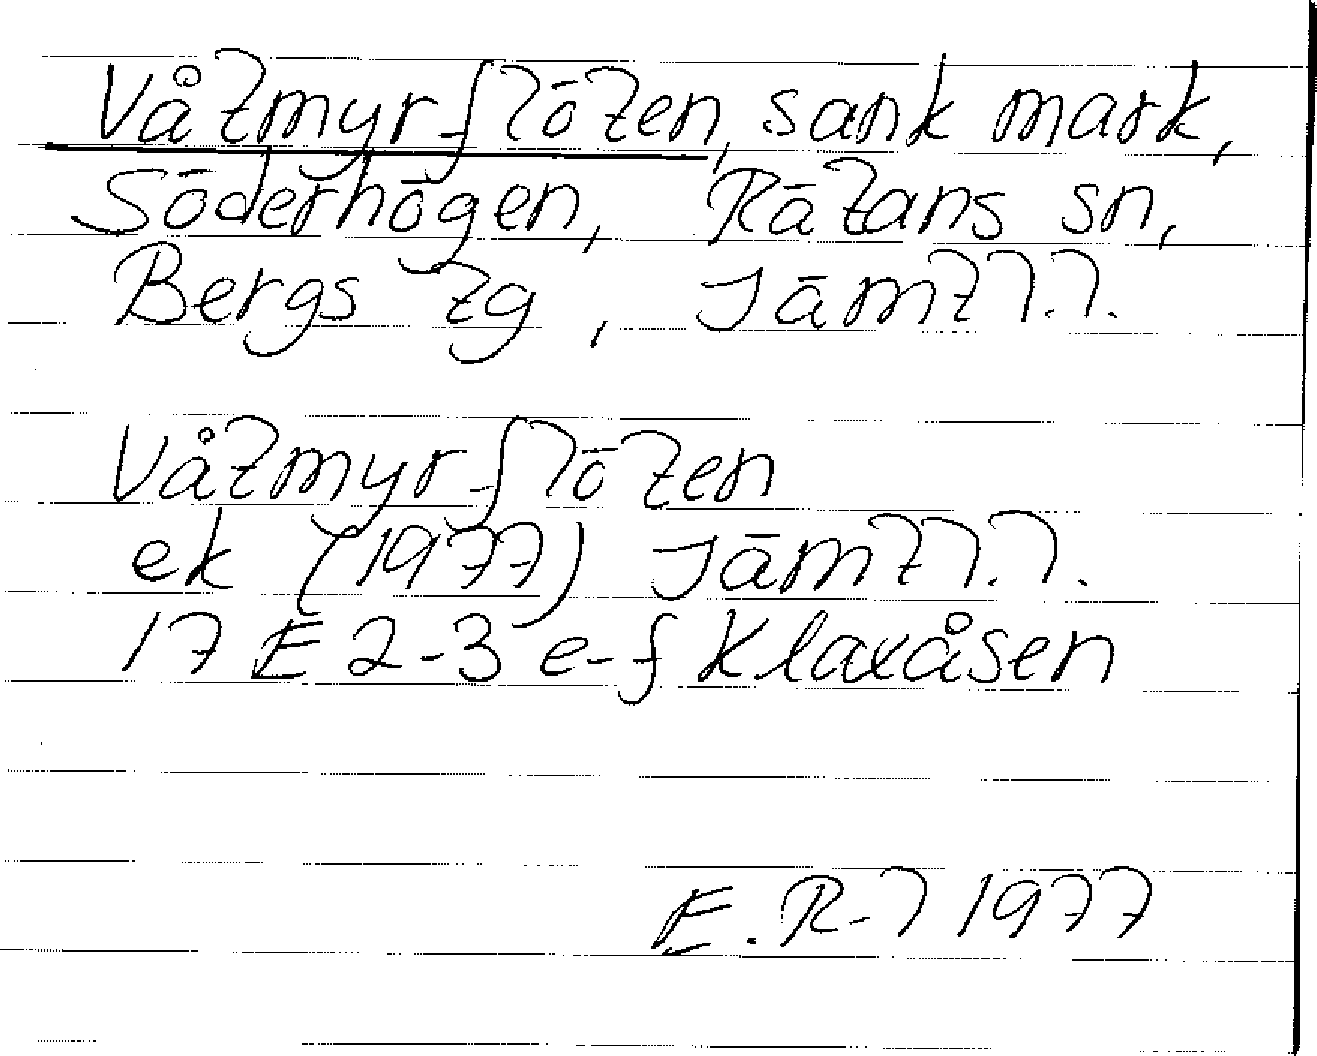 Våtmyrflöten, sank mark,
Söderhögen, Rätans sn,
Bergs tg, Jämtl.l.
Våtmyrflöten
ek (1977) Jämtl.l.
17 E 2-3 e-f Klaxåsen
E. R-l 1977